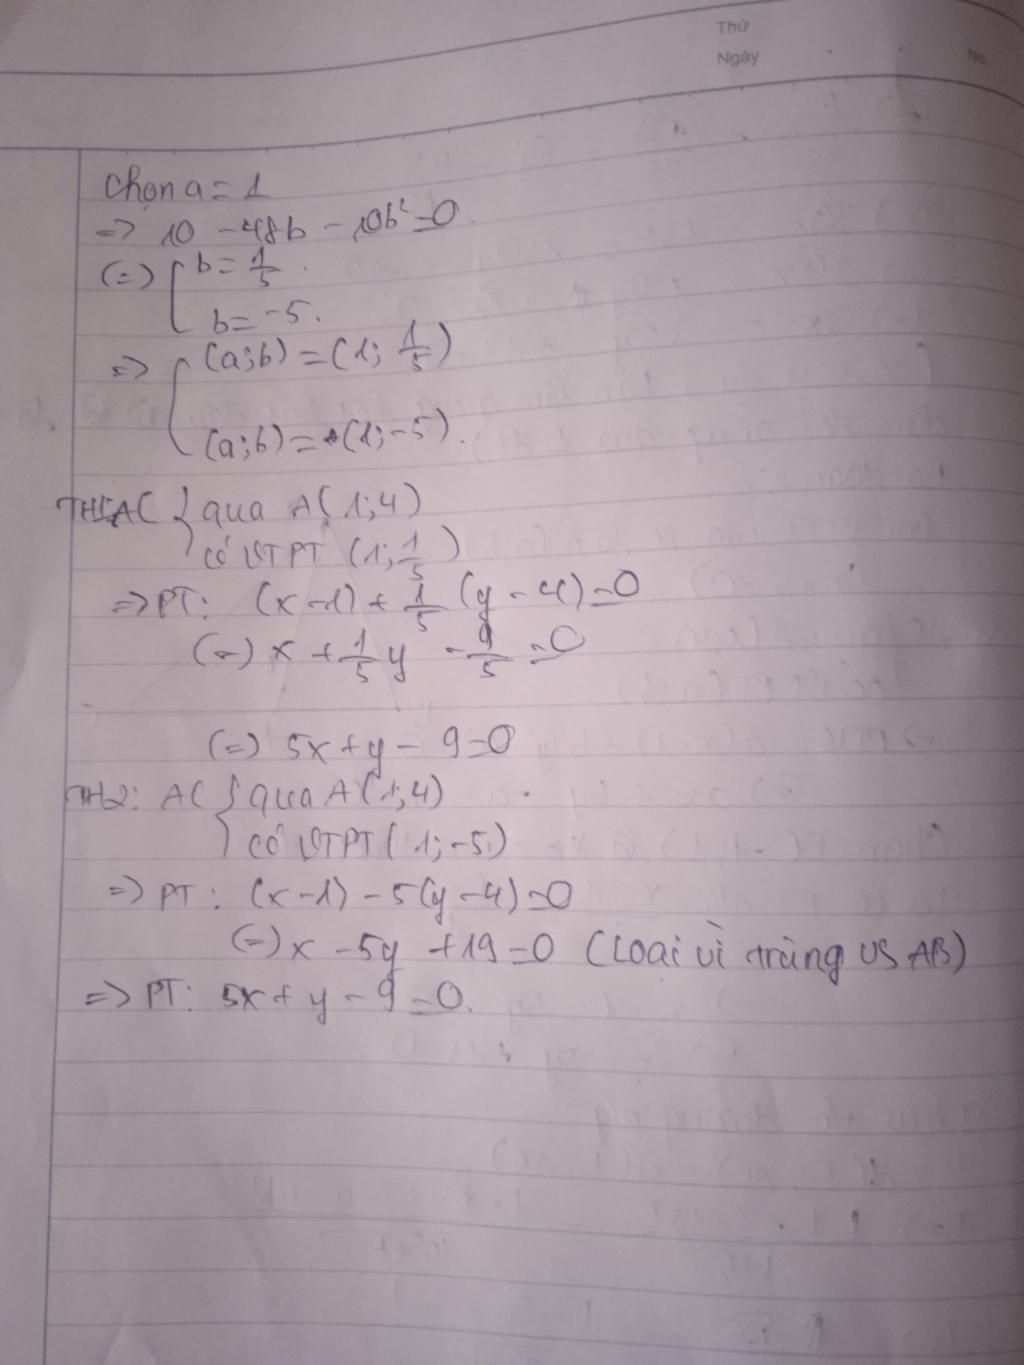 Thứ
Ngày
No.
Chọn a = 1
=> 10 - 48b - 10b² = 0
(=) [ b = 1/5
b = -5.
=> [ (a;b) = (1; 1/5)
(a;b) = (1; -5).
TH1: AC { qua A(1;4)
có VTPT (1; 1/5)
=> PT: (x - 1) + 1/5 (y - 4) = 0
(=) x + 1/5 y - 9/5 = 0
(=) 5x + y - 9 = 0
TH2: AC { qua A(1;4)
có VTPT (1; -5)
=> PT: (x - 1) - 5(y - 4) = 0
(=) x - 5y + 19 = 0 (Loại vì trùng VS AB)
=> PT: 5x + y - 9 = 0.